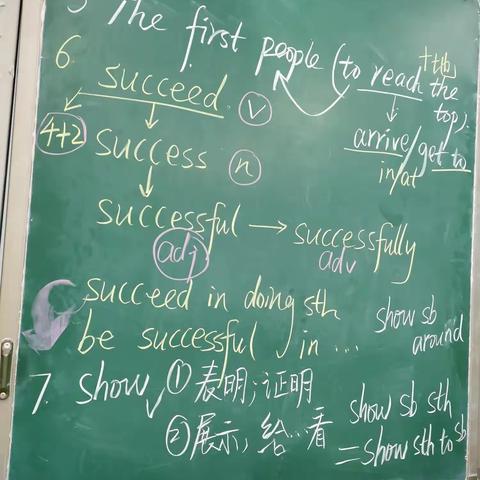 The first people (to reach the top)
+地
6
succeed. v
arrive/get to
in/at
4+2
success n
successful → successfully
adj
adv
succeed in doing sth
be successful in ...
show sb
around
7. show ①表明;证明
②展示,给...看
show sb sth
=show sth to sb